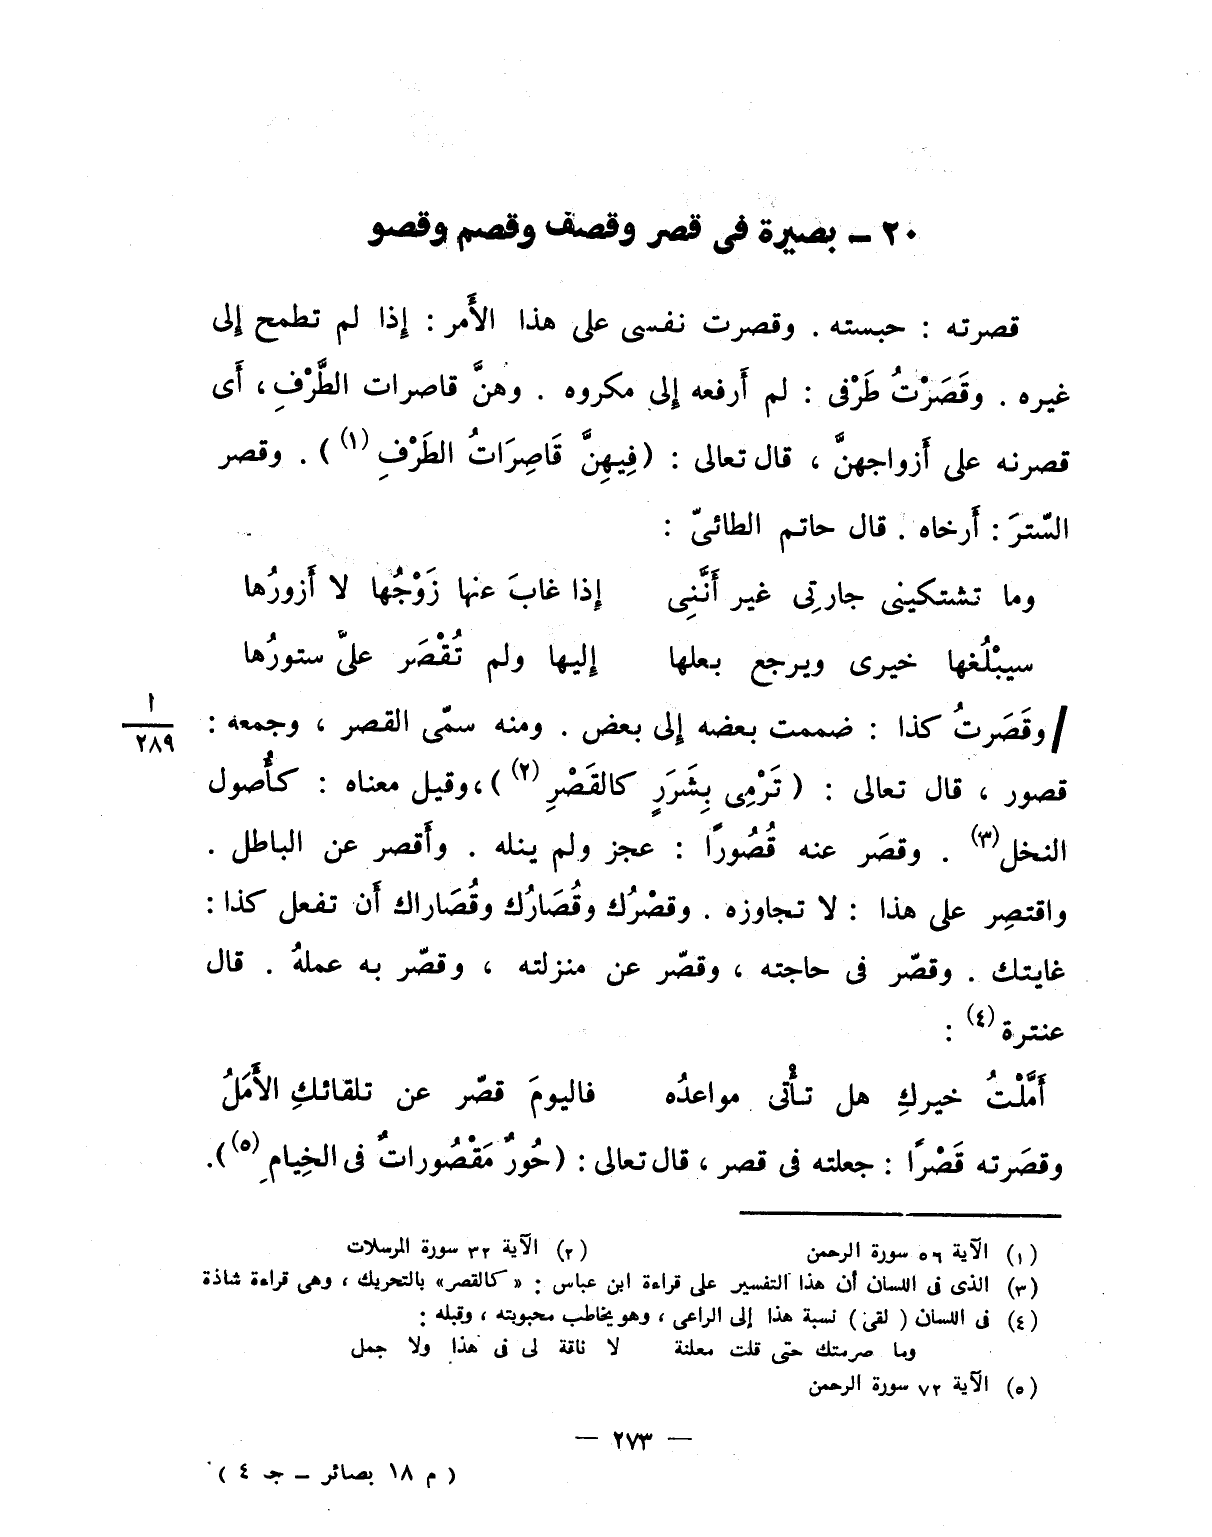 ٢٠ ــ بصيرة فى قصر وقصف وقصم وقصو
قصرته : حبسته . وقصرت نفسى على هذا الأَمر : إذا لم تطمح إلى
غيره . وقَصَرْتُ طَرْفى : لم أَرفعه إلى مكروه . وهنَّ قاصرات الطَّرْفِ ، أَى
قصرنه على أَزواجهنَّ ، قال تعالى : (فِيهِنَّ قَاصِرَاتُ الطَرْفِ (١) ) . وقصر
السّترَ : أَرخاه . قال حاتم الطائىّ :
وما تشتكينى جارتِى غير أَنَّنِى إذا غابَ عنها زَوْجُها لا أَزورُها
سيبْلُغها خيرى ويرجع بعلها إليها ولم تُقْصَر علىّ ستورُها
/ وقَصَرتُ كذا : ضممت بعضه إلى بعض . ومنه سمّى القصر ، وجمعه :
ا
٢٨٩
قصور ، قال تعالى : ( تَرْمِى بِشَرَرٍ كالقَصْرِ (٢) )، وقيل معناه : كأُصول
النخل (٣) . وقصَر عنه قُصُورًا : عجز ولم ينله . وأَقصر عن الباطل .
واقتصِر على هذا : لا تجاوزه . وقصْرُك وقُصَارُك وقُصَاراك أَن تفعل كذا :
غايتك . وقصّر فى حاجته ، وقصّر عن منزلته ، وقصّر به عملهُ . قال
عنترة (٤) :
أَمَّلْتُ خيركِ هل تأْتى مواعدُه فاليومَ قصّر عن تلقائكِ الأَمَلُ
وقصَرته قَصْرًا : جعلته فى قصر ، قال تعالى : (حُورٌ مَقْصُوراتٌ فى الخِيامِ (٥) ).
(١) الآية ٥٦ سورة الرحمن (٢) الآية ٣٢ سورة المرسلات
(٣) الذى فى اللسان أن هذا التفسير على قراءة ابن عباس : « كالقصر» بالتحريك ، وهى قراءة شاذة
(٤) فى اللسان ( لقى ) نسبة هذا إلى الراعى ، وهو يخاطب محبوبته ، وقبله :
وما صرمتك حتى قلت معلنة لا ناقة لى فى هذا ولا جمل
(٥) الآية ٧٢ سورة الرحمن
— ٢٧٣ —
( م ١٨ بصائر ــ جـ ٤ )